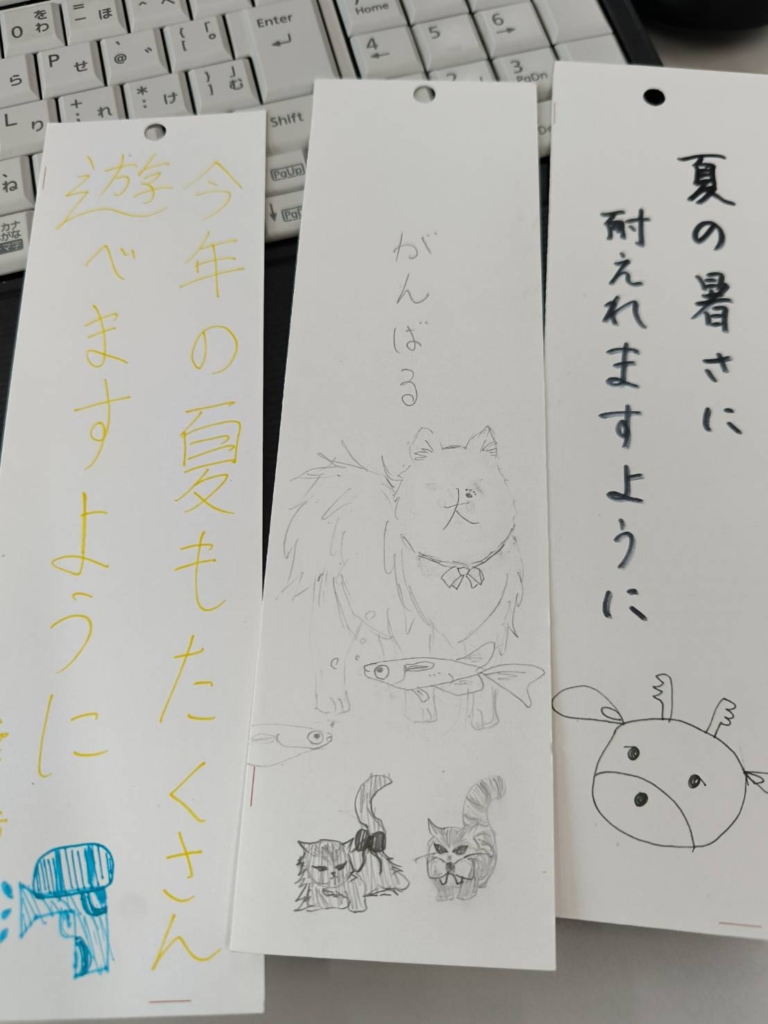 今年の夏もたくさん
遊べますように
がんばる
犬
夏の暑さに
耐えれますように
Enter
Home
4
5
6
3
PgDn
Shift
PgUp
0 を わ
ほ
P せ
@
L り
れ
け
む
ら
ね
カナ